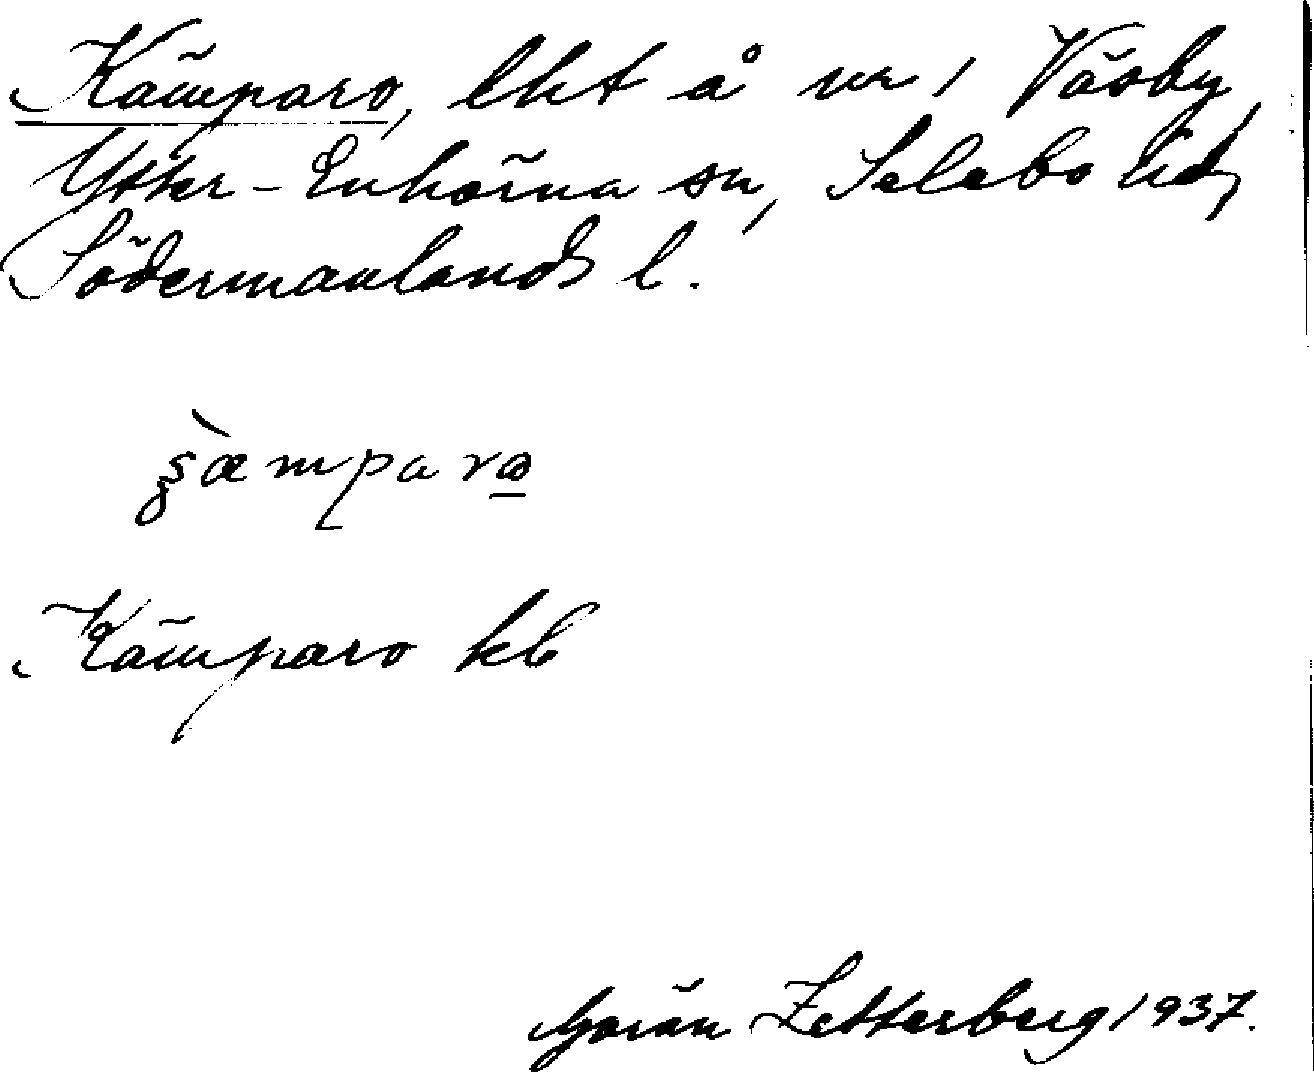 Kämparo, lht å nr 1 Väsby,
Ytter-Enhörna sn, Selebo hd,
Södermanlands l.
ʂæ̀mparω̲
Kämparo kb
Göran Zetterberg 1937.